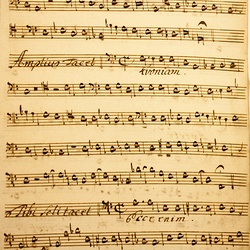 Amplius tacet
Quoniam.
Tibi soli tacet
Ecce enim.